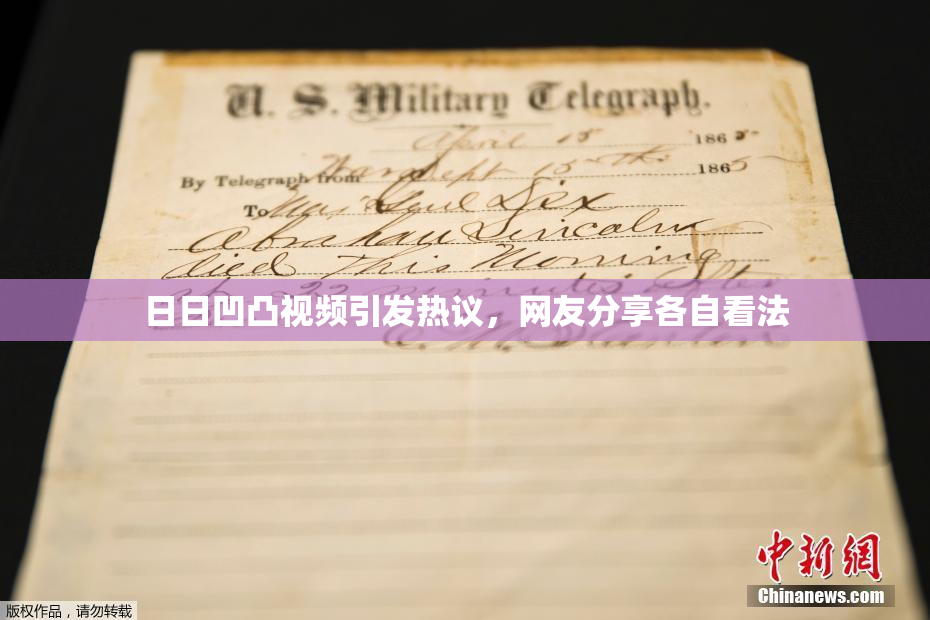 U. S. Military Telegraph.
April 15 1865
By Telegraph from War Dept 15th 1865
To Maj Genl Dix
Abraham Lincoln
died This Morning
at 22 minutes after
日日凹凸视频引发热议，网友分享各自看法
E. M. Stanton
中新网
Chinanews.com
版权作品，请勿转载